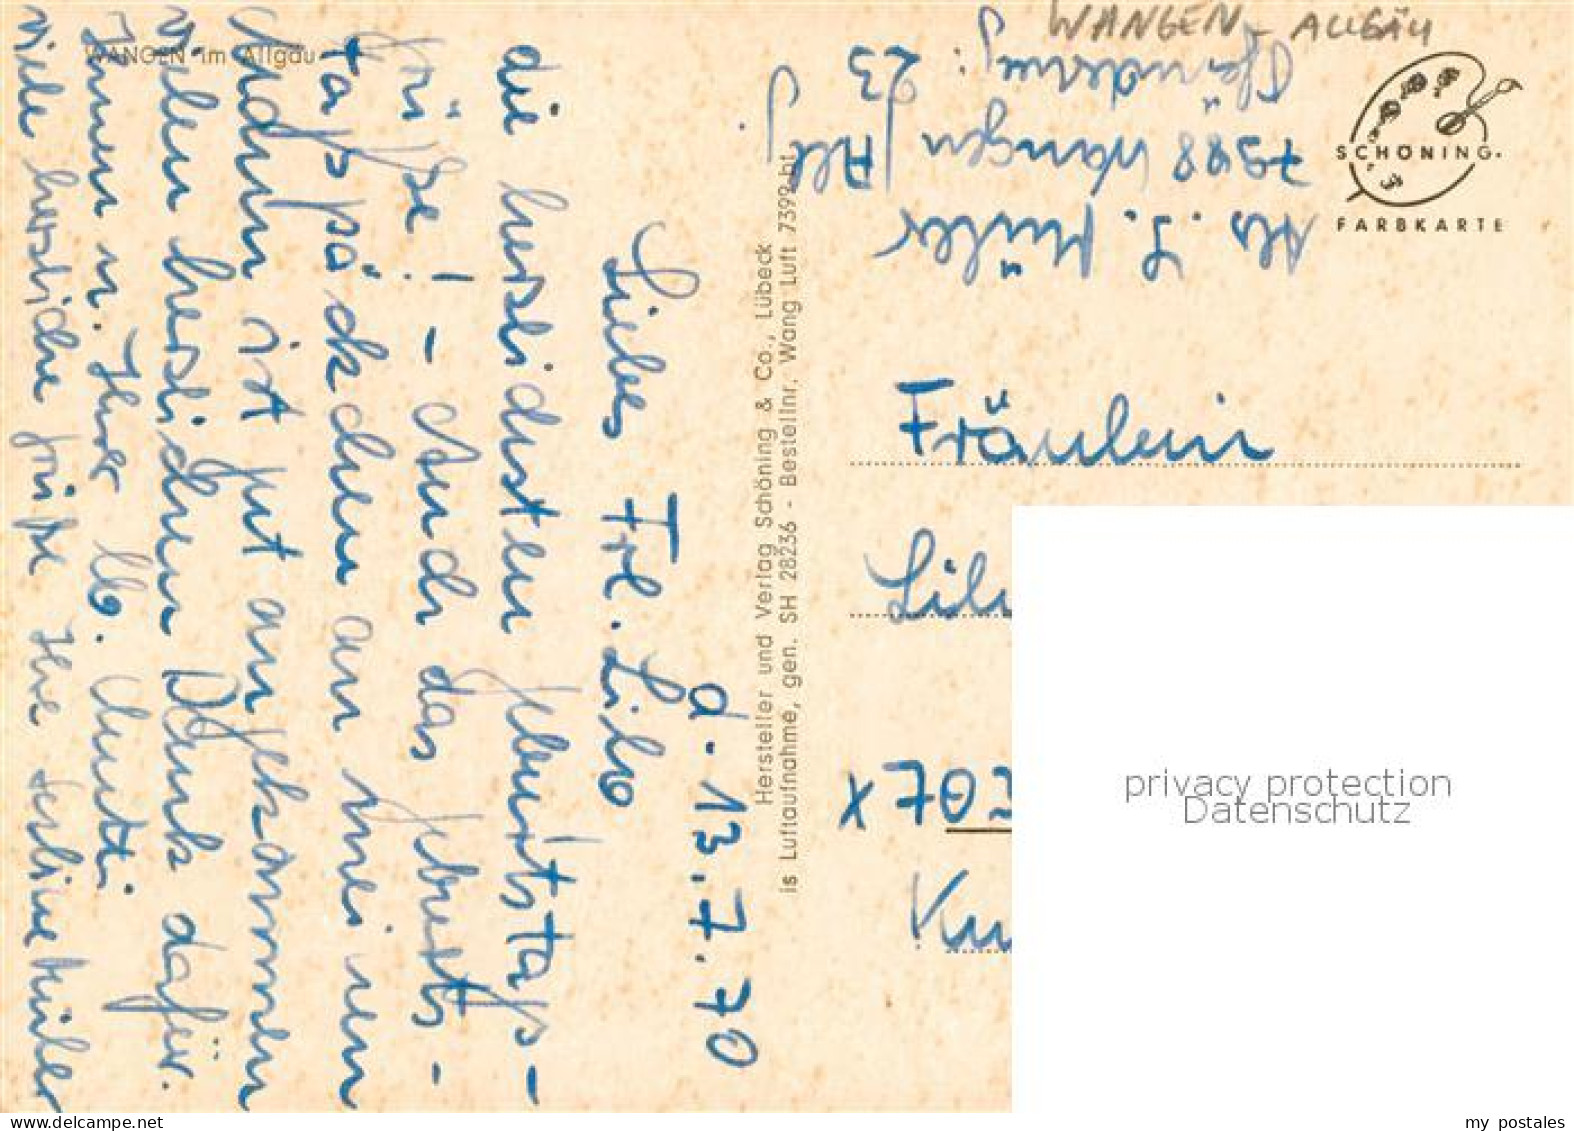 WANGEN - ALLGÄU
WANGEN im Allgäu
d. 13.7.70
Liebes Frl. Lilo
die herzlichsten Geburtstags-
grüße! - Auch das Geburts-
tagspäckchen an meinen
ist gut angekommen
vielen herzlichen Dank dafür.
Ihnen u. Ihrer lb. Mutti
viele herzliche Grüße Ihre Müller
Hersteller und Verlag Schöning & Co., Lübeck
is Luftaufnahme, gen. SH 28236 - Bestellnr. Wang Luft 7399 bt
Abs. L. Müller
7988 Wangen/Allg
23
SCHÖNING
FARBKARTE
Fräulein
Lil
x 702
Ku
privacy protection
Datenschutz
www.delcampe.net
my_postales